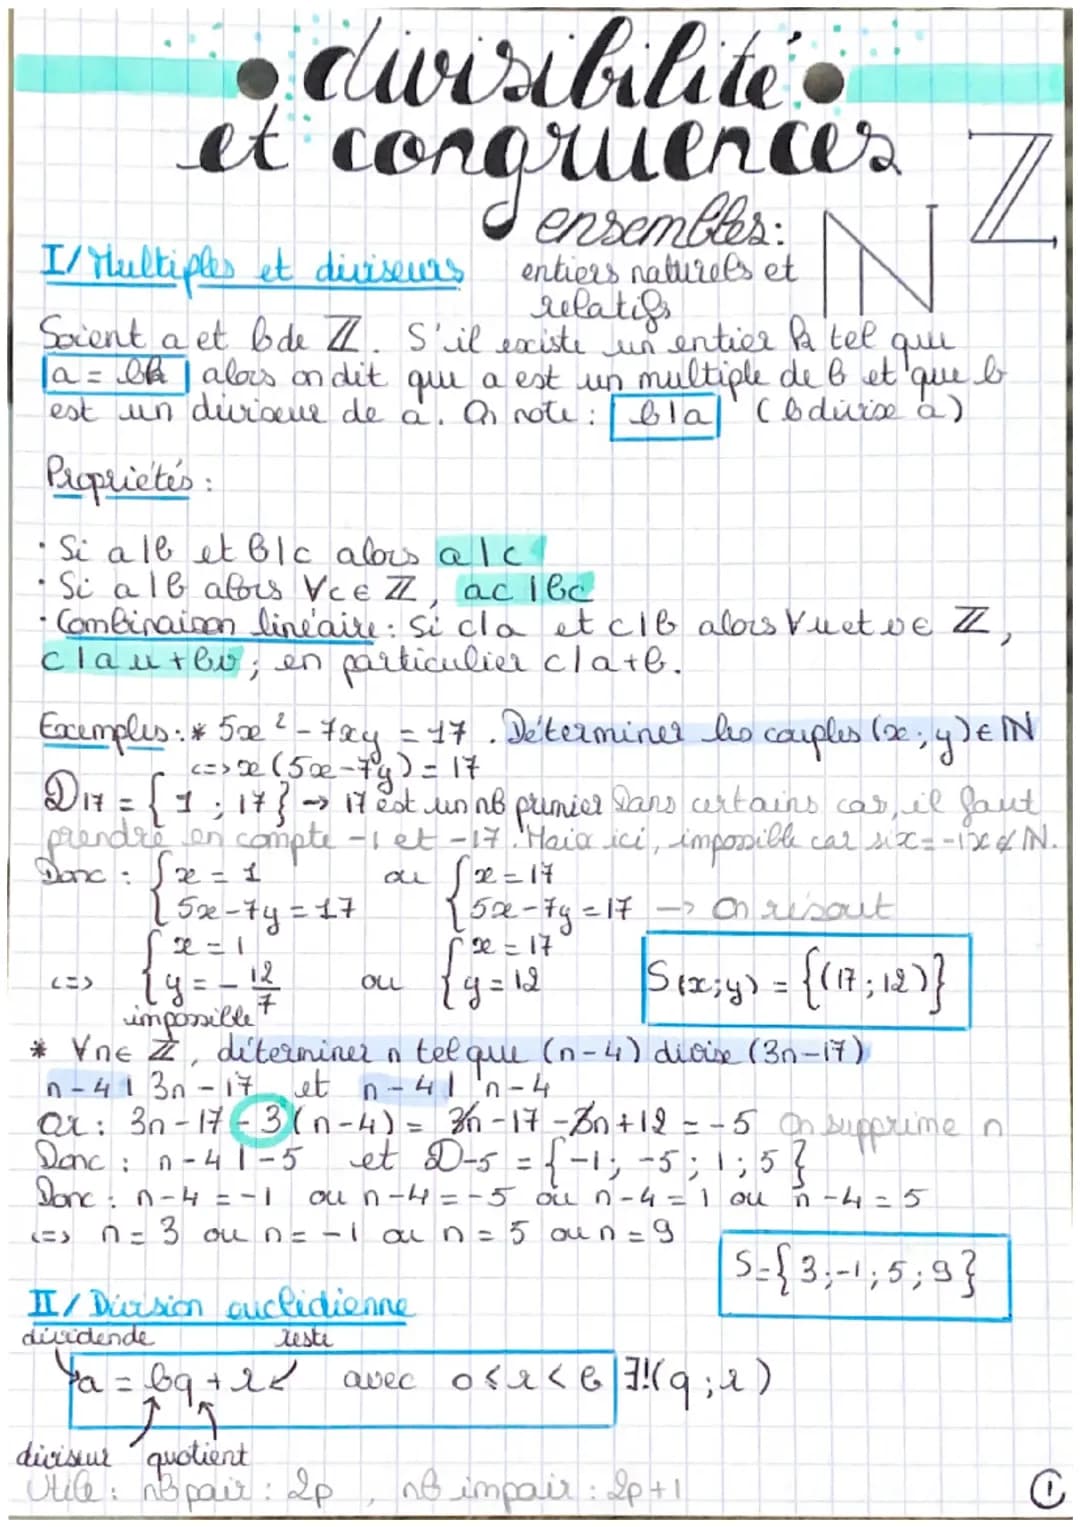 divisibilité
et congruences
ensembles: ℕ ℤ
entiers naturels et
relatifs
I/ Multiples et diviseurs
Soient a et b de ℤ. S'il existe un entier k tel que
a = bk alors on dit que a est un multiple de b et que b
est un diviseur de a. On note : b|a (b divise a)
Propriétés :
· Si a|b et b|c alors a|c
· Si a|b alors ∀c ∈ ℤ, ac|bc
· Combinaison linéaire : Si c|a et c|b alors ∀u et v ∈ ℤ,
c|au+bv ; en particulier c|a+b.
Exemples : * 5x² - 7xy = 17. Déterminer les couples (x;y) ∈ ℕ
<=> x(5x-7y) = 17
D17 = {1 ; 17} → 17 est un nb premier Dans certains cas, il faut
prendre en compte -1 et -17. Mais ici, impossible car si x=-1 x∉ℕ.
Donc : { x = 1 ou { x = 17
5x-7y = 17 5x-7y = 17 → On résout
<=> { x = 1 ou { x = 17
y = -12/7 y = 12 S(x;y) = {(17;12)}
impossible
* ∀n ∈ ℤ, déterminer n tel que (n-4) divise (3n-17)
n-4 | 3n-17 et n-4 | n-4
Or : 3n-17-3(n-4) = 3n-17-3n+12 = -5 On supprime n
Donc : n-4|-5 et D-5 = {-1; -5; 1; 5}
Donc : n-4 = -1 ou n-4 = -5 ou n-4 = 1 ou n-4 = 5
<=> n = 3 ou n = -1 ou n = 5 ou n = 9
S={3;-1;5;9}
II/ Division euclidienne
dividende reste
a = bq + r avec 0≤r<b ∃!(q;r)
diviseur quotient
Utile : nb pair : 2p , nb impair : 2p+1
1